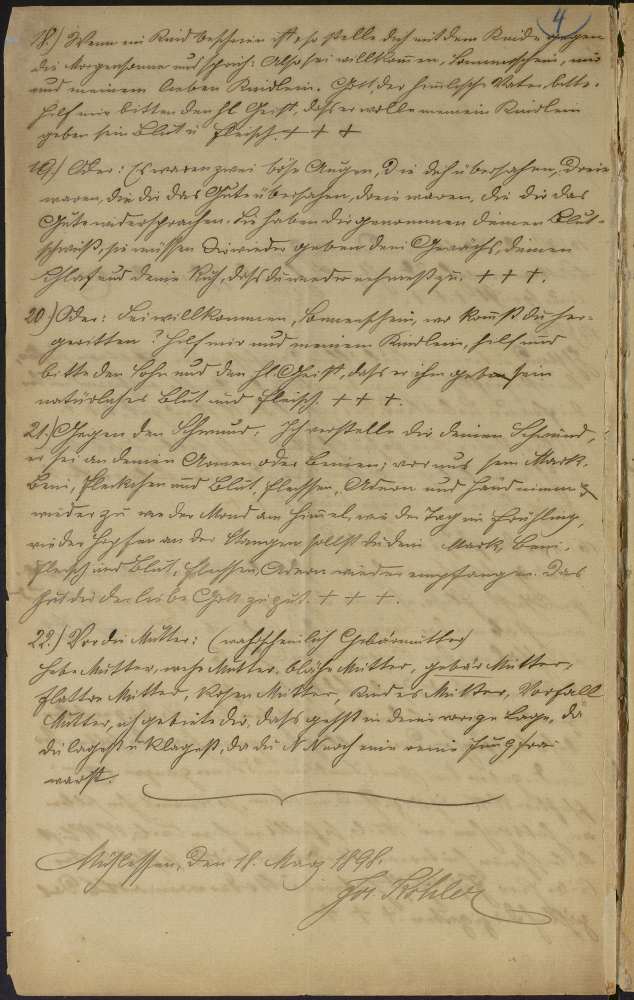 4
18.) Wenn ein Kind beschrien ist, so stelle dich mit dem Kinde gegen
die Morgensonne und sprich: Also sei willkommen, Sonnenschein, mir
und meinem lieben Kindlein. Gott, der himmlische Vater, bitte.
Hilf mir bitten den hl Geist, daß er wolle meinem Kindlein
geben sein Blut u Fleisch. + + +
19.) Oder: Es waren zwei böse Augen, die dich übersahen, Drei
waren, die dir das Gute übersahen, drei waren, die dir das
Gute widersprachen. Sie haben dir genommen deinen Blut-
schweiß, sie müssen dir wieder geben dein Gewächs, deinen
Schlaf und deine Ruh, daß du wieder nehmest zu. + + +.
20.) Oder: Sei willkommen, Sonnenschein, wo kommst du her-
geritten? Hilf mir und meinem Kindlein, hilf und
bitte den Sohn und den hl Geist, daß er ihm geben sein
natürliches Blut und Fleisch. + + +.
21.) Gegen den Schwund: Ich verstelle dir deinen Schwund,
er sei an deinen Armen oder Beinen; Mark,
Bein, und Blut, Flechsen, Adern und Haut nimm
wieder zu wie der Mond am Himmel, wie der Tag im Frühling,
wie der Hopfen an der Stangen sollst du dein Mark, Bein,
Fleisch und Blut, Flechsen, Adern wieder empfangen. Das
hat dir der liebe Gott zu gut. + + +.
22.) Vor die Mutter: (wahrscheinlich Gebärmutter)
Hebe Mutter, wehe Mutter, blähe Mutter, gebär Mutter,
flatter Mutter, Rosen Mutter, Mutter, Vorfall
Mutter, ich gebiete dir, daß gehst in deine vorige Lage, da
du lagest u klagest, da du N N noch eine reine Jungfrau
warst.
Mühlessen, den 18. März 1898.
Jos. Köhler